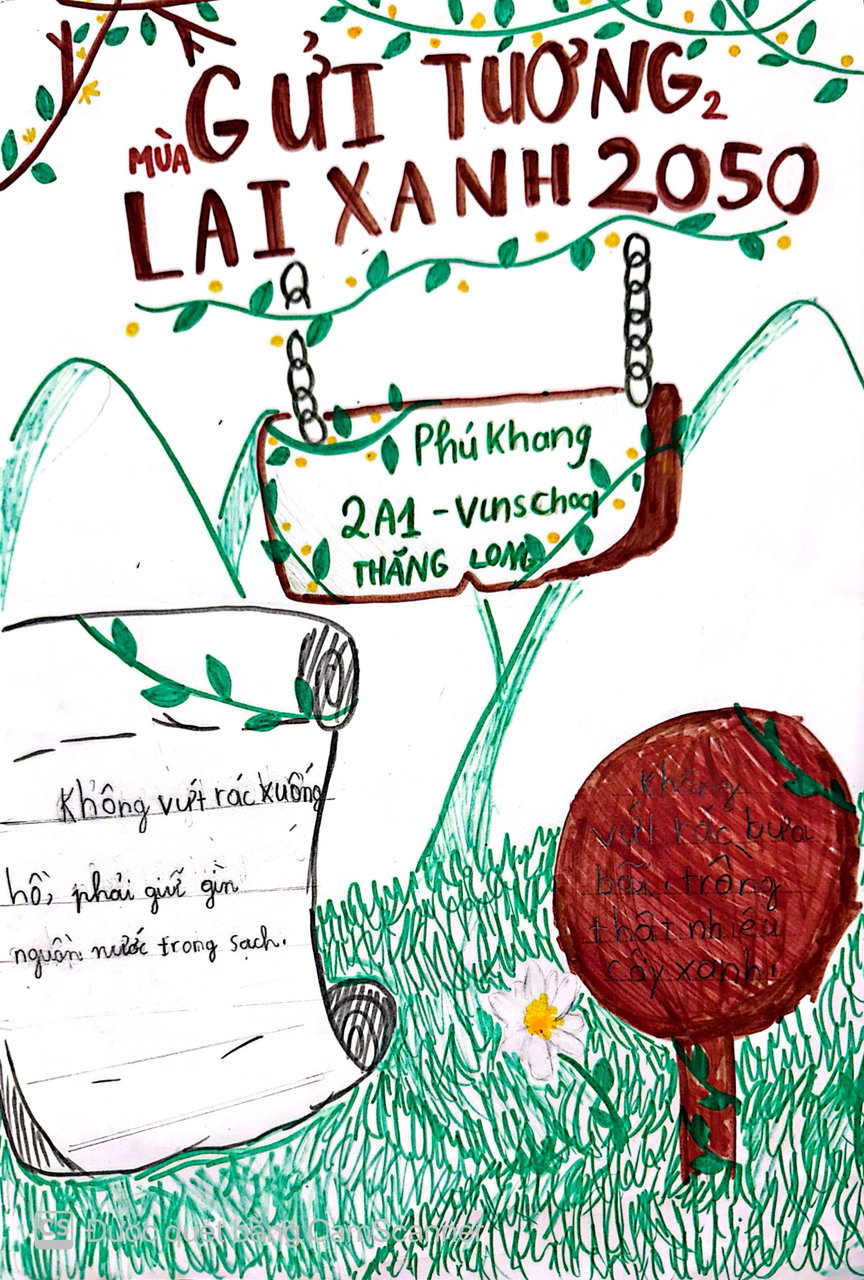 GỬI TƯƠNG
MÙA 2
LAI XANH 2050
Phú Khang
2A1 - Vinschool
THĂNG LONG
Không vứt rác xuống
hồ, phải giữ gìn
nguồn nước trong sạch.
Không
vứt rác bừa
bãi, trồng
thật nhiều
cây xanh!
CS Được quét bằng CamScanner